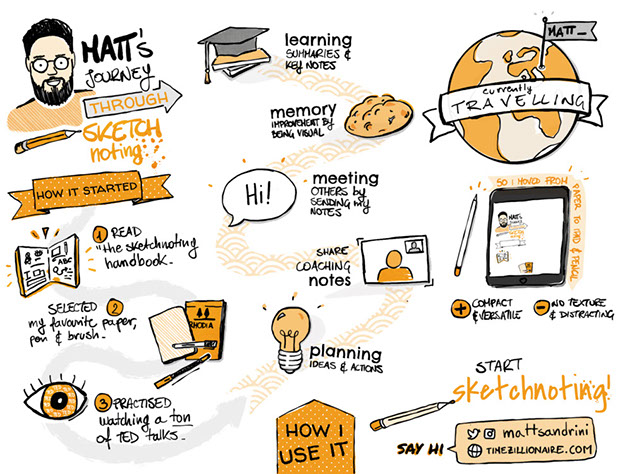 MATT's
JOURNEY
THROUGH
SKETCH
noting
HOW IT STARTED
1 READ
"the sketchnoting
handbook_
SELECTED 2
my favourite paper,
pen & brush_
RHODIA
3 PRACTISED
watching a ton
of TED talks_
learning
SUMMARIES &
KEY NOTES
memory
IMPROVEMENT by
BEING VISUAL
Hi!
meeting
OTHERS by
SENDING my
NOTES
SHARE
COACHING
notes
planning
IDEAS & ACTIONS
HOW I
USE IT
MATT_
currently
TRAVELLING
SO I MOVED FROM
PAPER TO IPAD & PENCIL
MATT's
JOURNEY
+ COMPACT
& VERSATILE
- NO TEXTURE
& DISTRACTING
START
sketchnoting!
SAY HI
mattsandrini
TIMEZILLIONAIRE.COM